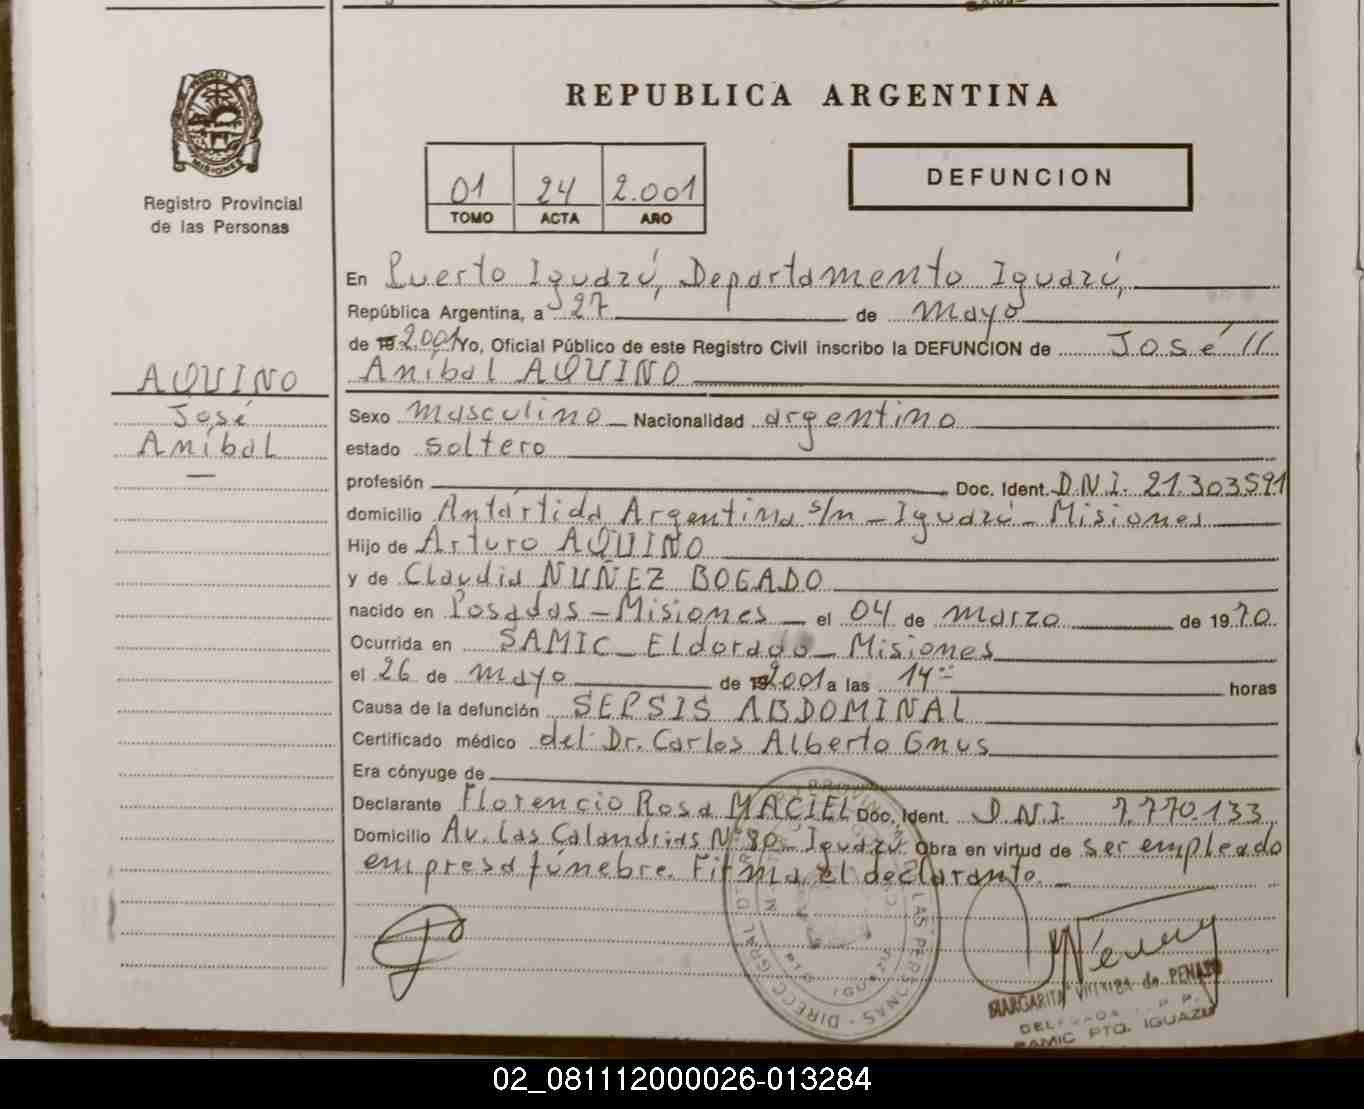 REPUBLICA ARGENTINA
MISIONES
Registro Provincial
de las Personas
01 24 2.001
TOMO ACTA AÑO
DEFUNCION
En Puerto Iguazú, Departamento Iguazú,
República Argentina, a 27 de mayo
de 19 2.001 Yo, Oficial Público de este Registro Civil inscribo la DEFUNCION de José //
Aníbal AQUINO
AQUINO
José
Aníbal
Sexo masculino Nacionalidad argentino
estado soltero
profesión Doc. Ident. D.N.I. 21.303.591
domicilio Antártida Argentina s/n - Iguazú - Misiones
Hijo de Arturo AQUINO
y de Claudia NUÑEZ BOGADO
nacido en Posadas - Misiones - el 04 de marzo de 1970.
Ocurrida en SAMIC - Eldorado - Misiones
el 26 de mayo de 19 2.001 a las 14 horas
Causa de la defunción SEPSIS ABDOMINAL
Certificado médico del Dr. Carlos Alberto Gnus
Era cónyuge de
Declarante Florencio Rosa MACIEL Doc. Ident. D.N.I. 7.770.133
Domicilio Av. Las Calandrias Nº 80 - Iguazú. Obra en virtud de ser empleado
empresa fúnebre. Firma el declarante.
DIRECC. GRAL. LAS PERSONAS
IGUAZU
MARGARITA de
SAMIC PTO. IGUAZU
02_081112000026-013284